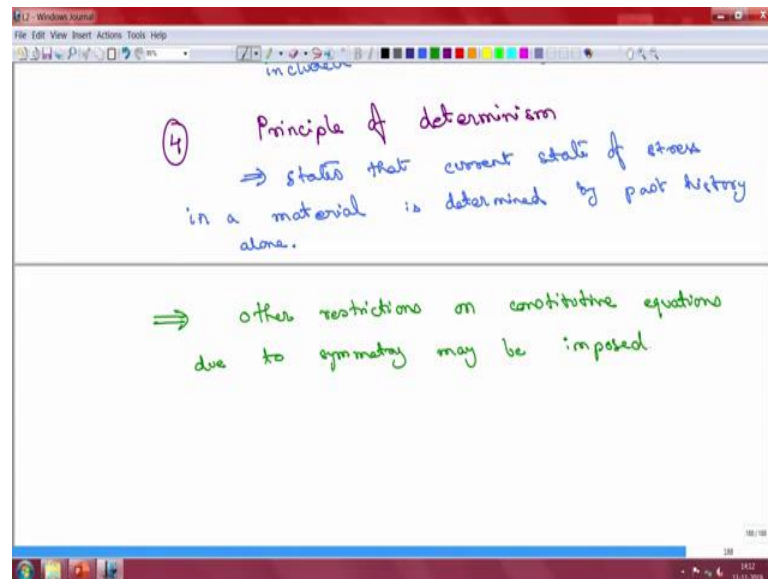 L2 - Windows Journal
File Edit View Insert Actions Tools Help
included
4 Principle of determinism
⇒ states that current state of stress
in a material is determined by past history
alone.
⇒ other restrictions on constitutive equations
due to symmetry may be imposed.
188
14:12